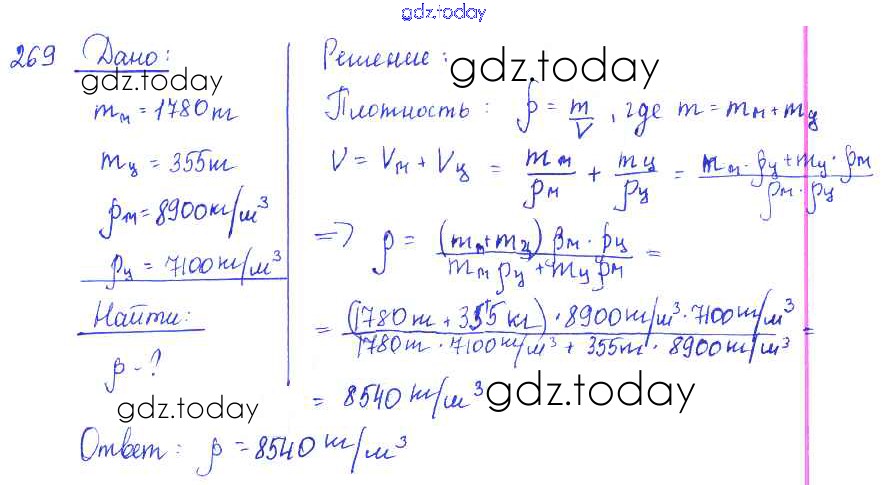 gdz.today
269 Дано:
gdz.today
mм = 1780 кг
mц = 355 кг
ρм = 8900 кг/м³
ρц = 7100 кг/м³
Найти:
ρ - ?
gdz.today
Решение:
gdz.today
Плотность: ρ = m/V, где m = mм + mц
V = Vм + Vц = mм/ρм + mц/ρц = (mм · ρц + mц · ρм)/(ρм · ρц)
=> ρ = (mм + mц) ρм · ρц/(mм ρц + mц ρм) =
= (1780 кг + 355 кг) · 8900 кг/м³ · 7100 кг/м³/(1780 кг · 7100 кг/м³ + 355 кг · 8900 кг/м³) =
= 8540 кг/м³
gdz.today
Ответ: ρ = 8540 кг/м³